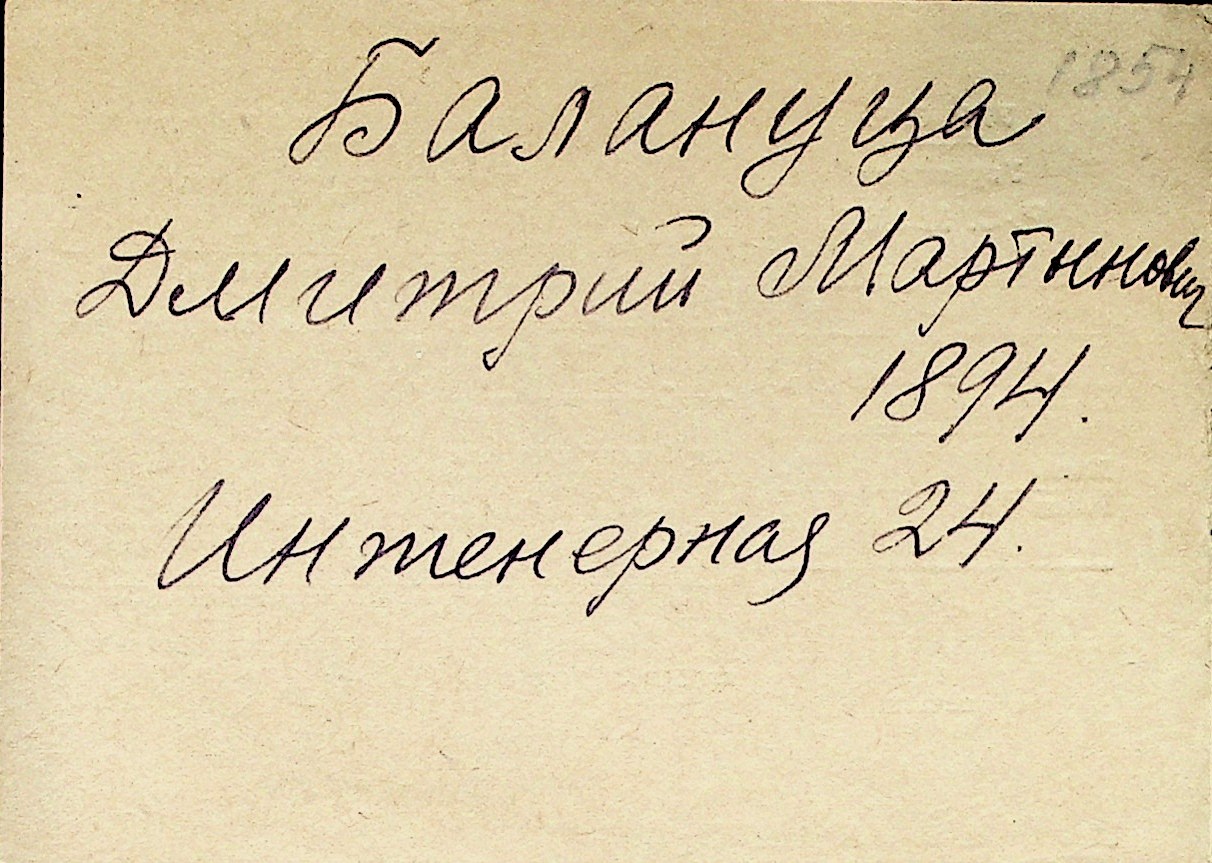 1854
Балануца
Дмитрий Мартынович
1894.
Интенерная 24.